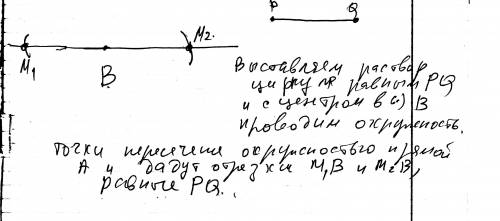 P Q
M₁ B M₂
Выставляем раствор
циркуля равным PQ
и с центром в (·) B
проводим окружность.
Точки пересечения окружностью прямой
A и дадут отрезки M₁B и M₂B,
равные PQ.